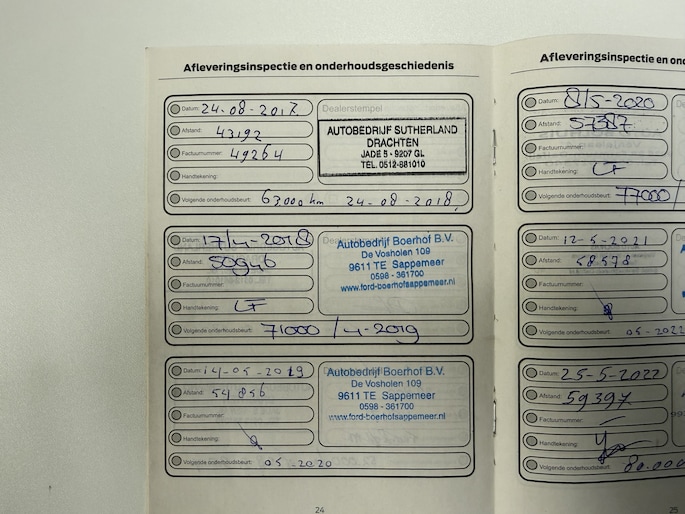 Afleveringsinspectie en onderhoudsgeschiedenis
Datum: 24-08-2017
Dealerstempel
Afstand: 43192
Factuurnummer: 49264
Handtekening:
AUTOBEDRIJF SUTHERLAND
DRACHTEN
JADE 5 - 9207 GL
TEL. 0512-881010
Volgende onderhoudsbeurt: 63000 km 24-08-2018
Datum: 17/4-2018
Afstand: 50946
Factuurnummer:
Handtekening:
Autobedrijf Boerhof B.V.
De Vosholen 109
9611 TE Sappemeer
0598 - 361700
www.ford-boerhofsappemeer.nl
Volgende onderhoudsbeurt: 71000 / 4-2019
Datum: 14-05-2019
Afstand: 54856
Factuurnummer:
Handtekening:
Autobedrijf Boerhof B.V.
De Vosholen 109
9611 TE Sappemeer
0598 - 361700
www.ford-boerhofsappemeer.nl
Volgende onderhoudsbeurt: 05-2020
24
Afleveringsinspectie en ond
Datum: 8/5-2020
Afstand: 57387
Factuurnummer:
Handtekening:
Volgende onderhoudsbeurt: 77000/
Datum: 12-5-2021
Afstand: 58578
Factuurnummer:
Handtekening:
Volgende onderhoudsbeurt: 05-2022
Datum: 25-5-2022
Afstand: 59397
Factuurnummer: -
Handtekening:
Volgende onderhoudsbeurt: 80.000
25